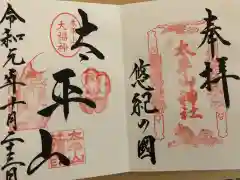 奉拝
太平山神社
悠紀の国
太平山
大福神
令和元年十月二十三日